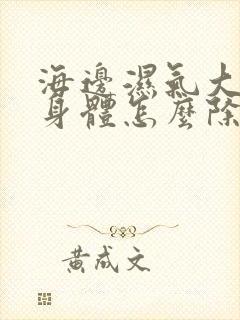 海邊濕氣大
身體怎麼除
黃成文